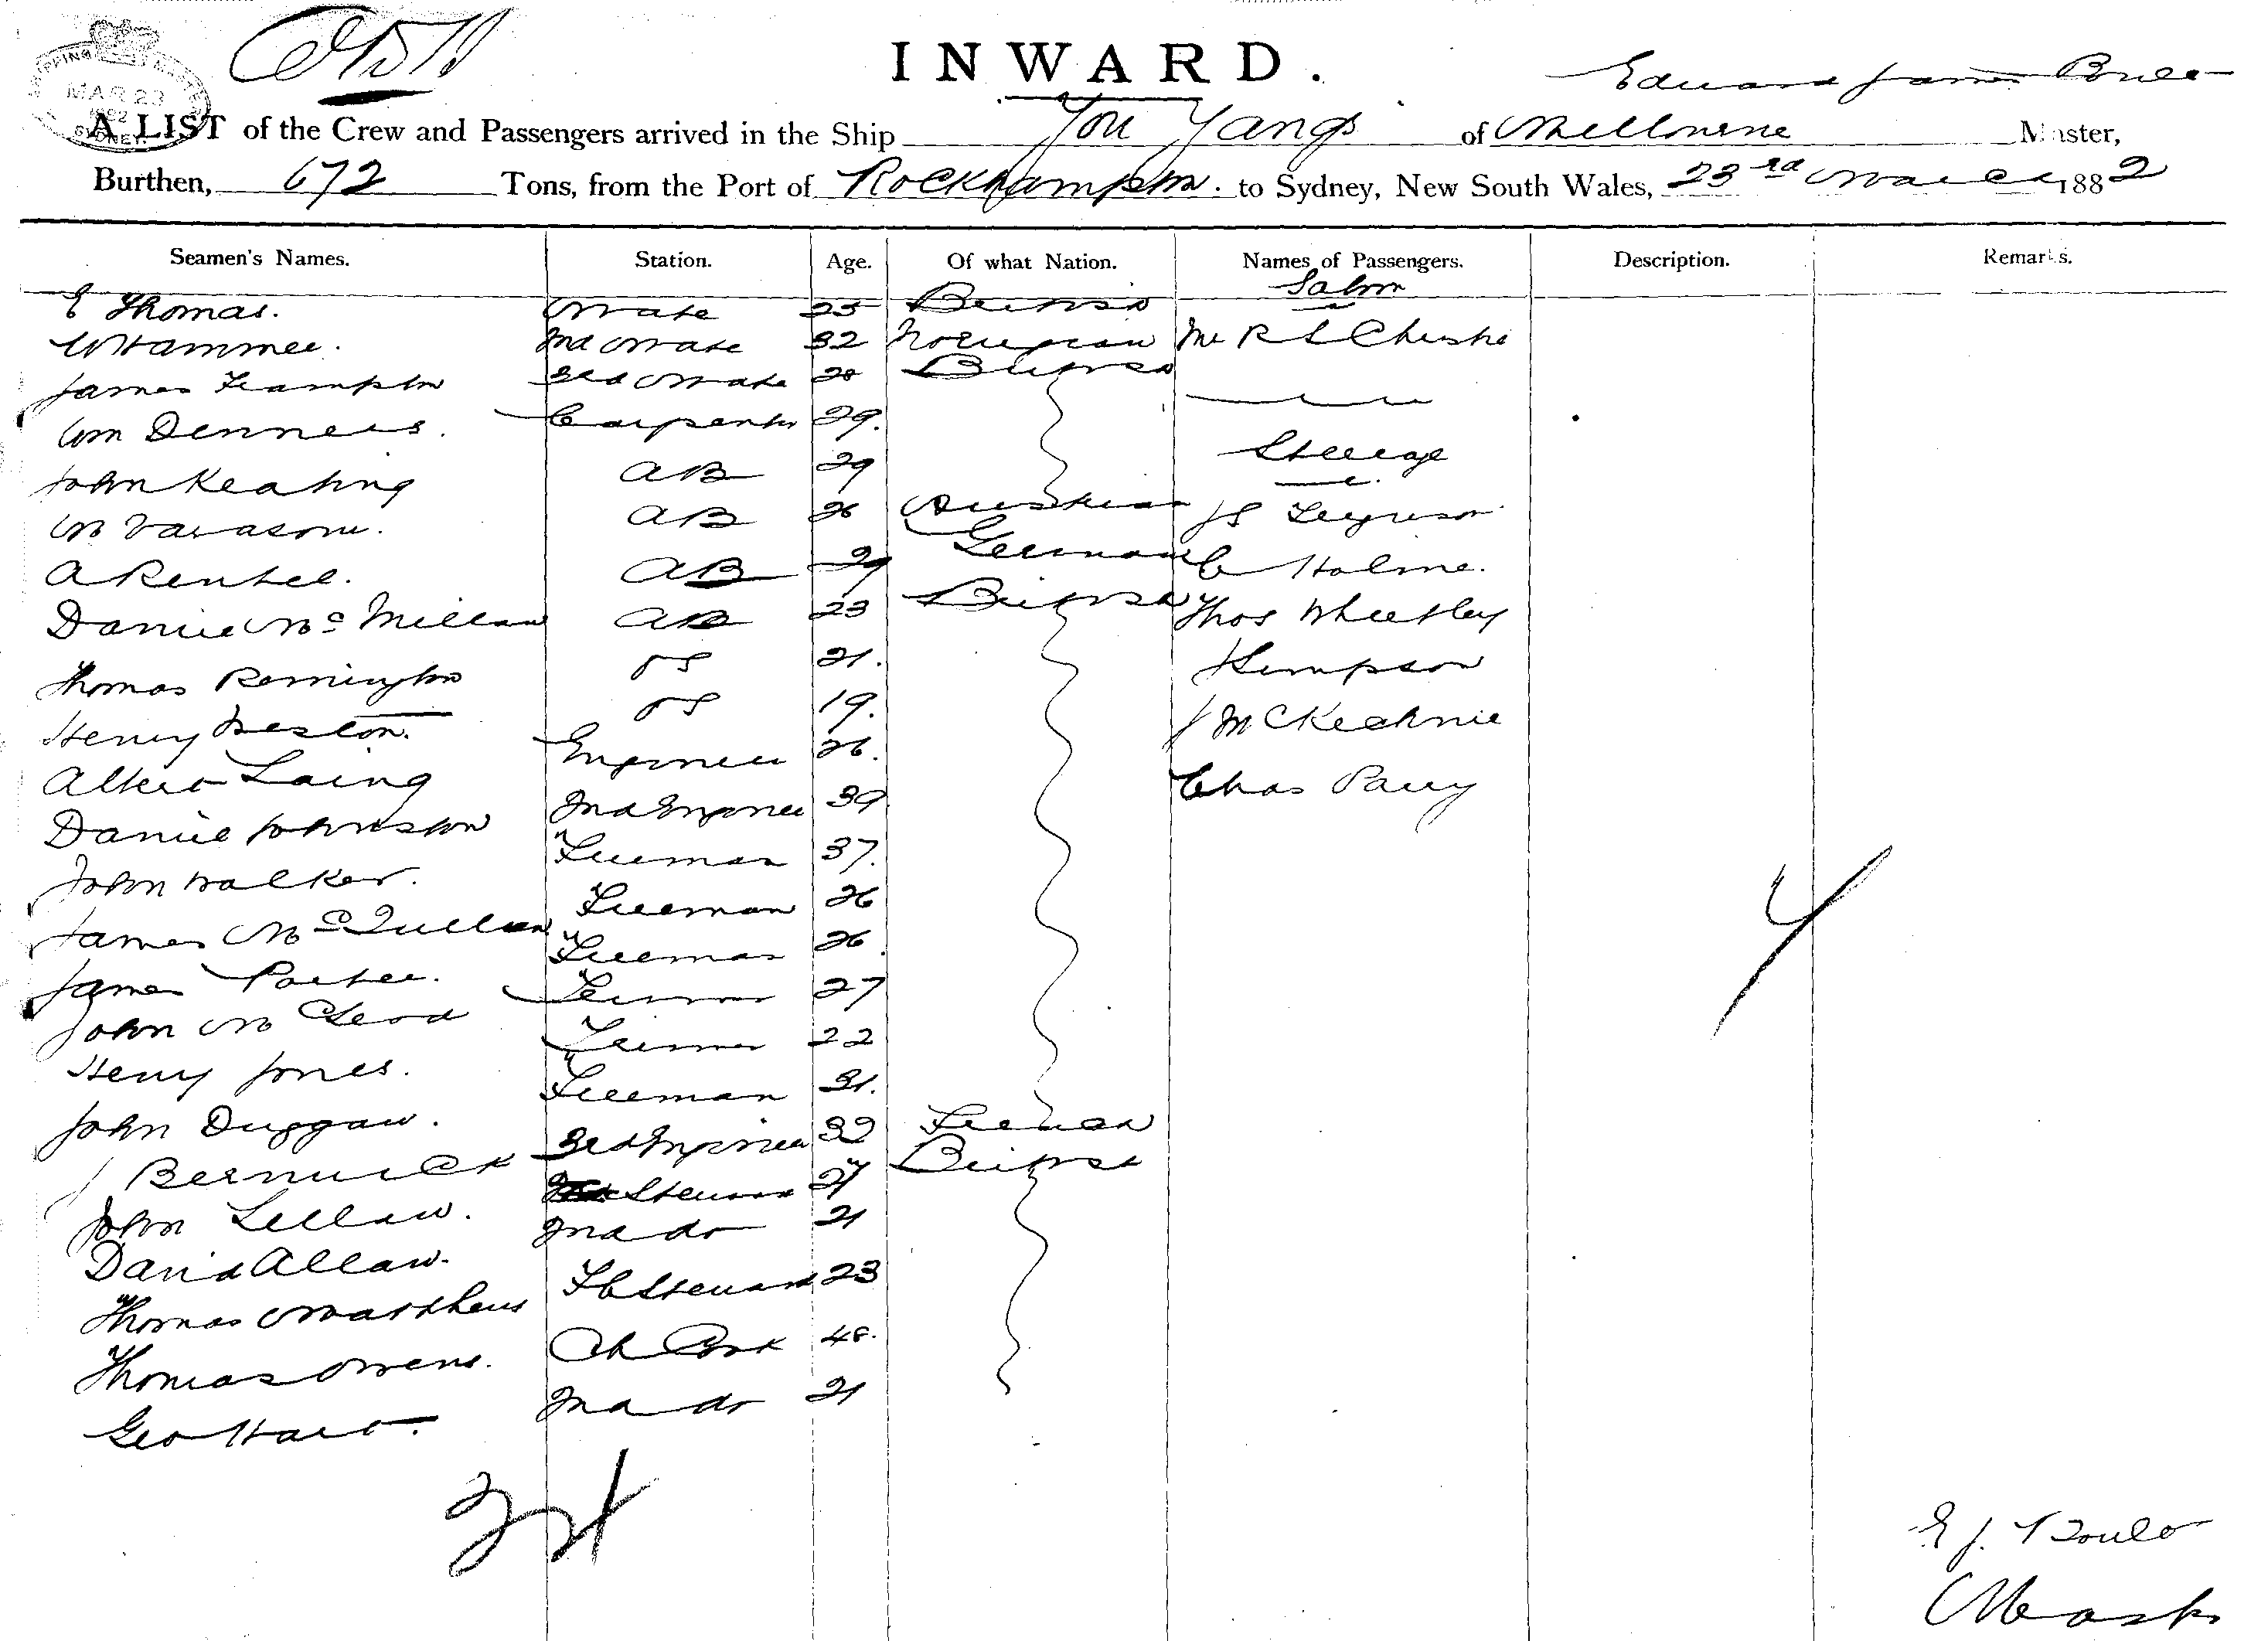 SHIPPING MASTER'S
MAR 23
1882
SYDNEY
INWARD.
Edward James
A LIST of the Crew and Passengers arrived in the Ship You Yangs of Melbourne Master,
Burthen, 672 Tons, from the Port of Rockhampton. to Sydney, New South Wales, 23rd March 1882
Seamen's Names. Station. Age. Of what Nation. Names of Passengers. Description. Remarks.
Saloon
E Thomas. Mate 25 British
2nd Mate 32 Norwegian Mr R S Christie
James Frampton 3rd Mate 28 British
Wm Carpenter 29.
Steerage
John Keating AB 29
M AB 26 Austrian J S Ferguson
A Rentel. AB 29 German C Holme.
Daniel McMillan AB 23 British Thos Wheatley
Thomas Remington OS 21. Kempson
Henry OS 19. J McKechnie
Albert Laing Engineer 26. Chas Parry
Daniel Johnston 2nd Engineer 39
John Walker. Fireman 37.
James Fireman 26
James Porter. Fireman 26
John McLeod Trimmer 27
Henry Jones. Trimmer 22
John Duggan. Fireman 31.
J Berwick 3rd Engineer 32 French
John Steward 27 British
David Allan. 2nd do 21
Thomas Matthews FC Steward 23
Thomas Owens. Ch Cook 48.
Geo Hart. 2nd do 21
E J
Master